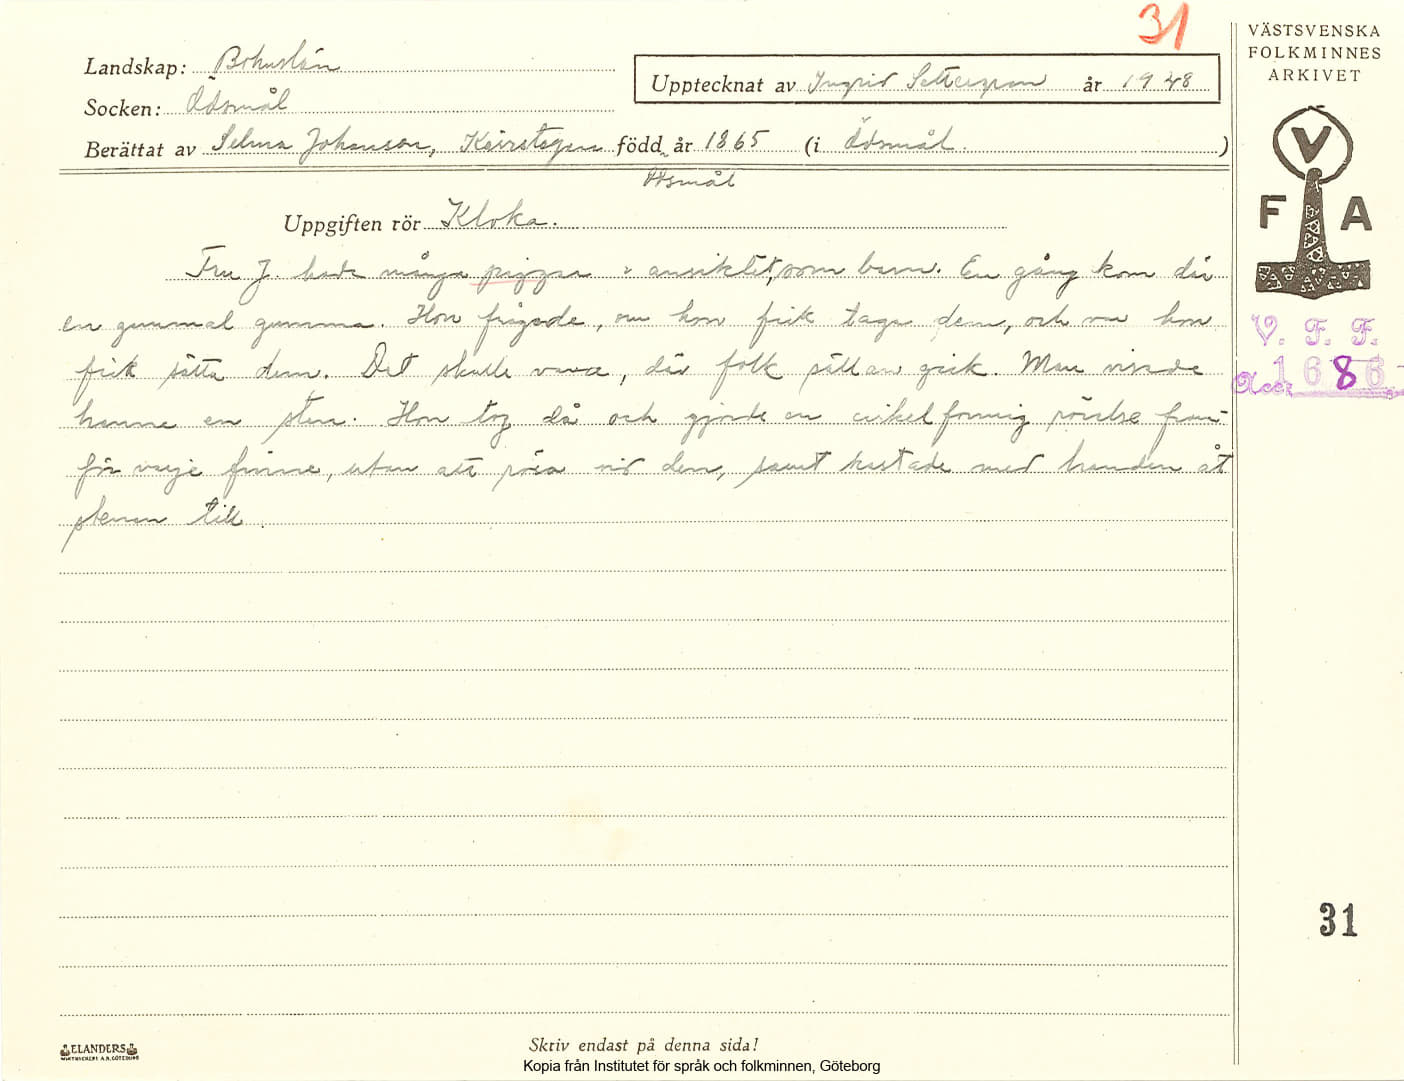 31
VÄSTSVENSKA
FOLKMINNES
ARKIVET
Landskap: Bohuslän
Upptecknat av Ingrid år 1948
Socken: Ödsmål
Berättat av Selma Johanson, född år 1865 (i Ödsmål.)
Ödsmål
Uppgiften rör Kloka.
V
F A
Fru J. hade många piggar i ansiktet, som barn. En gång kom där
en gammal gumma. Hon frågade, om hon fick taga dem, och var hon
fick sätta dem. Det skulle vara, där folk sällan gick. Man visade
henne en sten. Hon tog då och gjorde en cirkelformig rörelse fram-
för varje finne, utan att röra vid den, samt kastade med handen åt
stenen till.
V. F. F.
Acc. 1686
31
ELANDERS
Skriv endast på denna sida!
Kopia från Institutet för språk och folkminnen, Göteborg